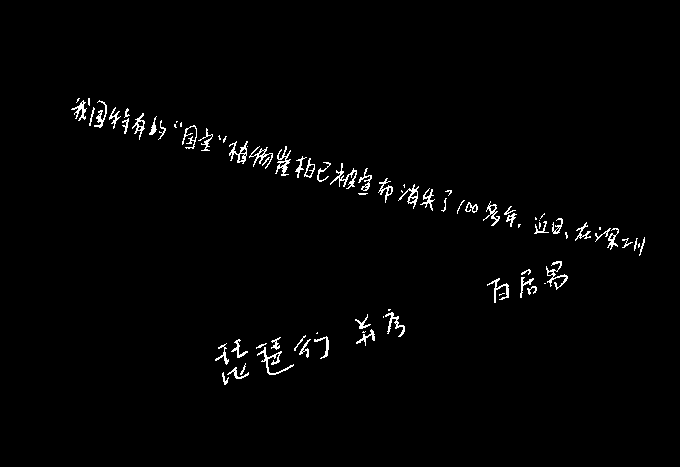 我国特有的“国宝”植物崖柏已被宣布消失了100多年，近日、在深圳
琵琶行 并序 白居易